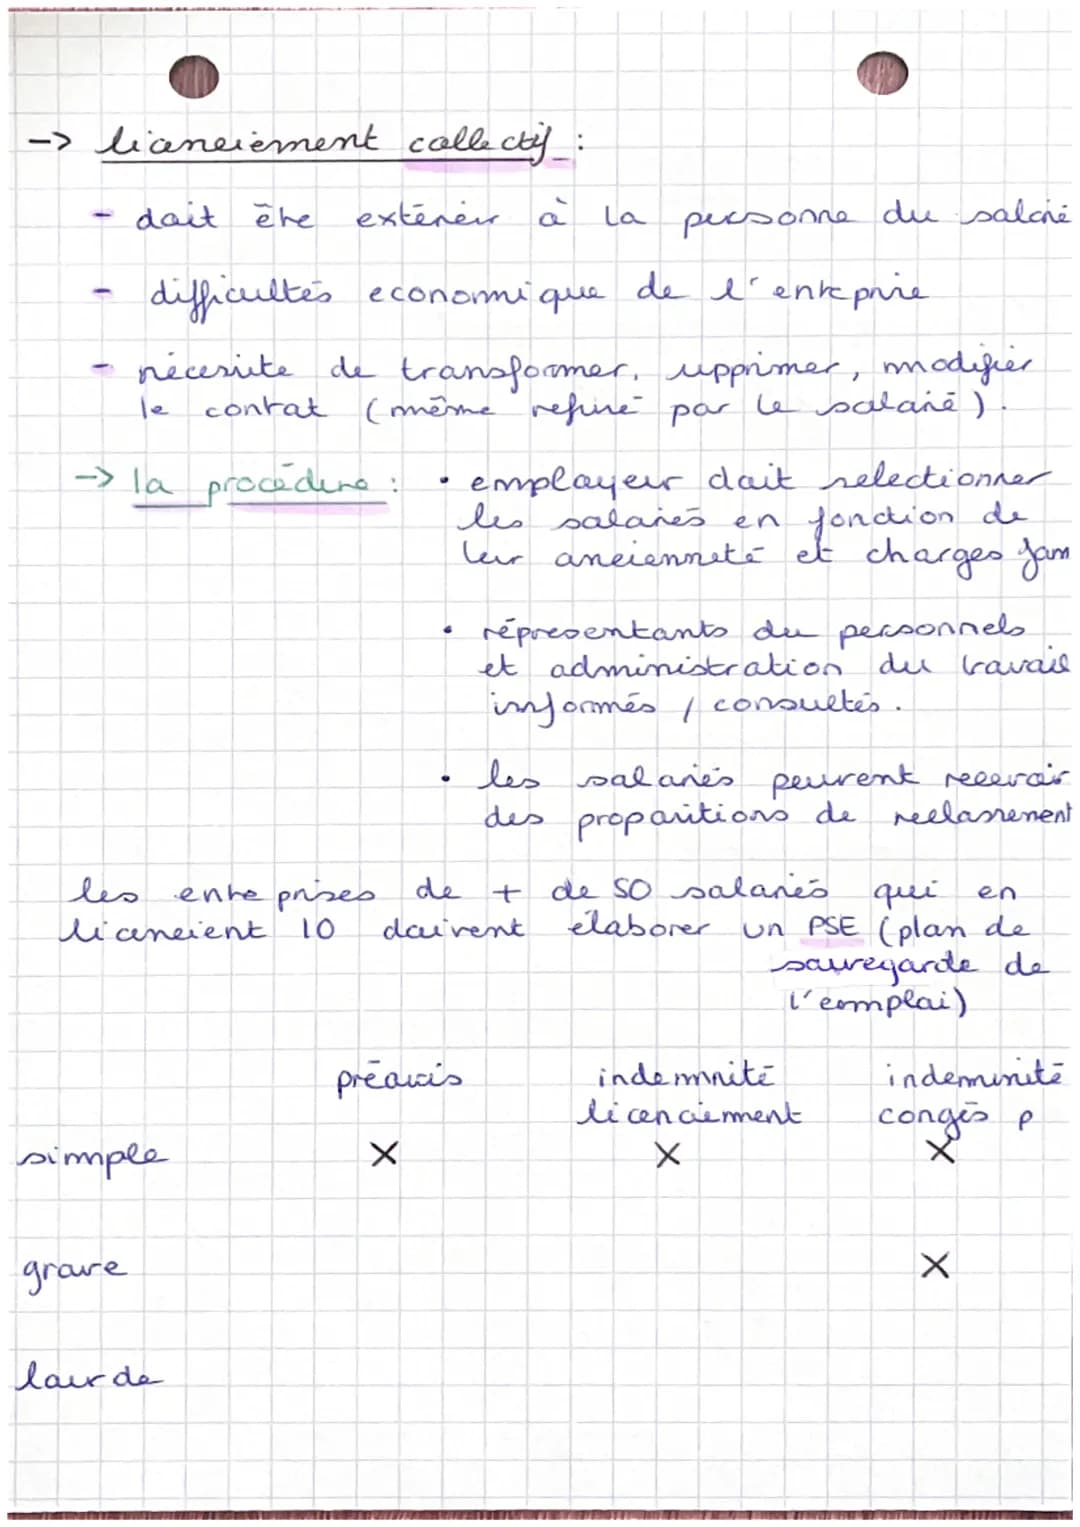 -> licenciement collectif :
- doit être extérieur à la personne du salarié
- difficultés economique de l'entreprise
- nécessite de transformer, supprimer, modifier
le contrat (même refusé par le salarié).
-> la procédure : • employeur doit selectionner
les salariés en fonction de
leur ancienneté et charges fam
• réprésentants du personnels
et administration du travail
informés / consultés.
• les salariés peuvent recevoir
des propositions de reclassement
les entreprises de + de 50 salariés qui en
licencient 10 doivent élaborer un PSE (plan de
sauvegarde de
l'emploi)
préavis indemnité indeminité
licenciement congés p
simple X X X
grave X
lourde